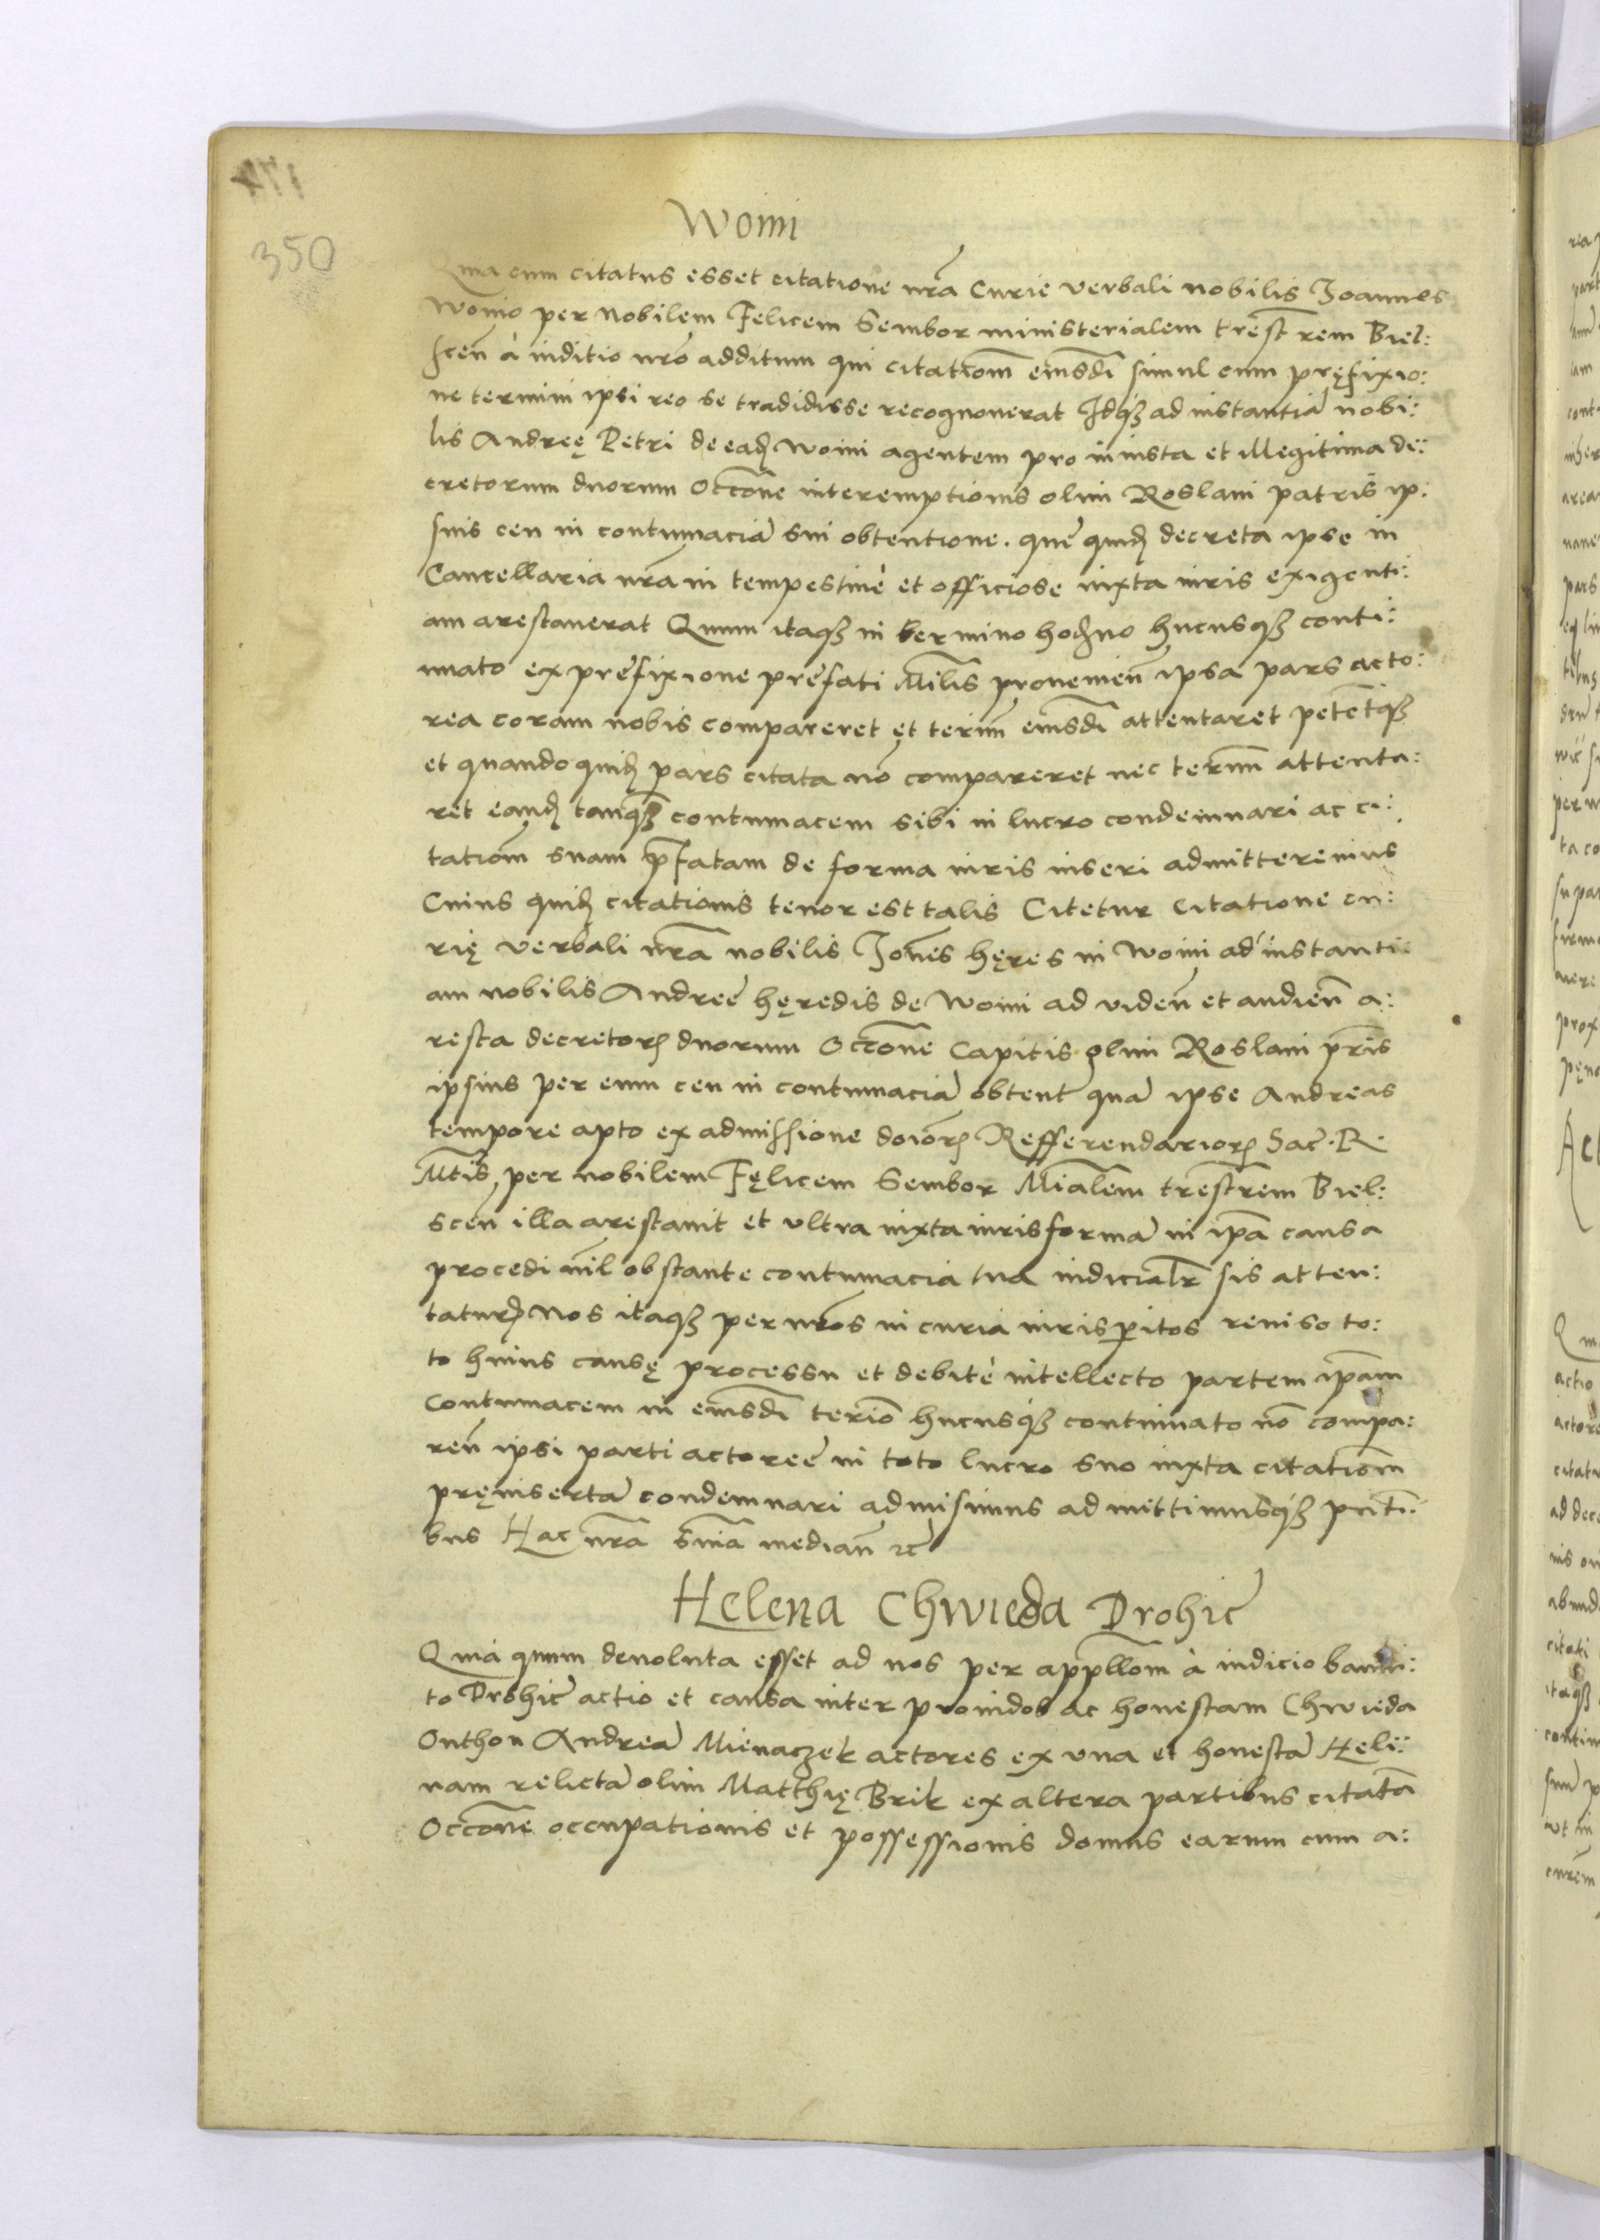 350
Woini
Quia cum citatus esset citatione nrã Curie verbali nobilis Joannes
Woino per Nobilem Felicem Sembor ministerialem trest̃rem Biel:
scen̄ à iuditio nrõ additum qui citatiom̄ eiusdī simul cum pręfixio:
ne termini ipsi reo se tradidisse recognouerat Idq₃ ad instantiā nobi:
lis Andreę Petri de eađ Woini agentem pro iniusta et illegitima de:
cretorum duorum Occõne interemptionis olim Roslani patris ip:
sius ceu in contumaciā sui obtentione. que quiđ decreta ipse in
Cancellaria nrã in tempestiuè et officiose iuxta iuris exigenti:
am arestauerat Quum itaq₃ in termino hođno hucusq₃ conti:
nuato ex prefixione prefati Mĩlis prouenien̄ ipsa pars acto:
rea coram nobis compareret et terim̄ eiusdī attentaret petẽtq₃
et quandoquiđ pars citata nō compareret nec termm̄ attenta:
ret eanđ tanq₃ contumacem sibi in lucro condemnari ac ci:
tatiom̄ suam p̃fatam de forma iuris inseri admitteremus
Cuius quiđ citationis tenor est talis Citetur Citatione cu:
rię verbali nrã nobilis Jonẽs hęres in Woini ad instanti
am nobilis Andreę hęredis de Woini ad viden̄ et audien̄ a:
resta decretor₃ duorum Occõne Capitis olim Roslani pr̃is
ipsius per eum ceu in contumaciā obtent̄ qua ipse Andreas
tempore apto ex admissione doiõr₃ Refferendarior₃ Sac̄. R.
Mt̃is, per nobilem Fęlicem Sembor Miãlem trestrẽm Biel:
scen̄ illa arestauit et vltra iuxta iuris formā in ipã causa
procedi nĩl obstante contumacia tua iudicialr̃ sis atten:
tatur₃ Nos itaq₃ per nrõs in curia iurisperitos reuiso to:
to huius causę processu et debitè intellecto partem ipãm
Contumacem in eiusdī teriõ hucusq₃ continuato nō compa:
ren̄ ipsi parti actoree in toto lucro suo iuxta citatiom̄
pręinsertā condemnari admisimus admittimusq₃ pnt̃i:
bus Hac nrã sñia median̄ ꝛc̄
Helena Chwieda Drohic̄
Quia quum deuoluta esset ad nos per appllom̄ à iudicio banni:
to Drohic̄ actio et causa inter prouidos ac honestam Chwieda
Onthon Andreā Mienaczek actores ex vna et honestā Heli:
nam relictā olim Matthię Brik ex altera partibus citatā
Occõne occupationis et possessionis domus earum cum a: